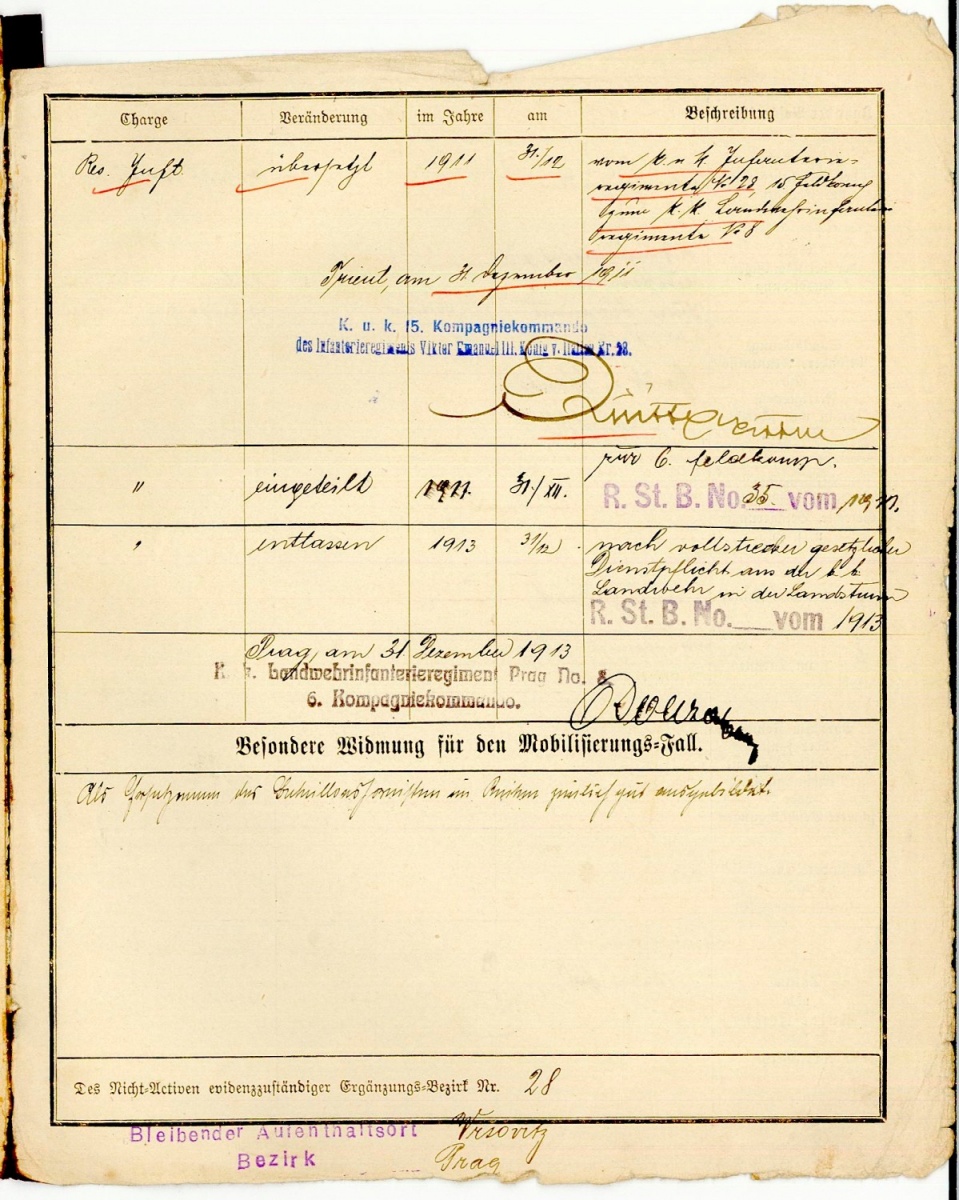 Charge Veränderung im Jahre am Beschreibung
Res. Inft. übersetzt 1911 31./12 vom k. u. k. Infanterie-
regimente No 28 15 Feldkomp
zum k. k. Landwehrinfanterie
regimente No 8
Trient, am 31. Dezember 1911
K. u. k. 15. Kompagniekommando
des Infanterieregiments Viktor Emanuel III. König v. Italien Nr. 28.
zur 6. Feldkomp.
" eingeteilt 1911. 31./XII.
R. St. B. No. 35. vom 1911.
" entlassen 1913 31/12 nach vollstreckter gesetzlicher
Dienstpflicht aus der k. k.
Landwehr in den Landsturm
R. St. B. No. vom 1913
Prag, am 31. Dezember 1913
K. k. Landwehrinfanterieregiment Prag No. 8
6. Kompagniekommando.
Besondere Widmung für den Mobilisierungs-Fall.
Als des im ziemlich gut ausgebildet.
Des Nicht-Activen evidenzzuständiger Ergänzungs-Bezirk Nr. 28
Bleibender Aufenthaltsort Vršovitz
Bezirk Prag